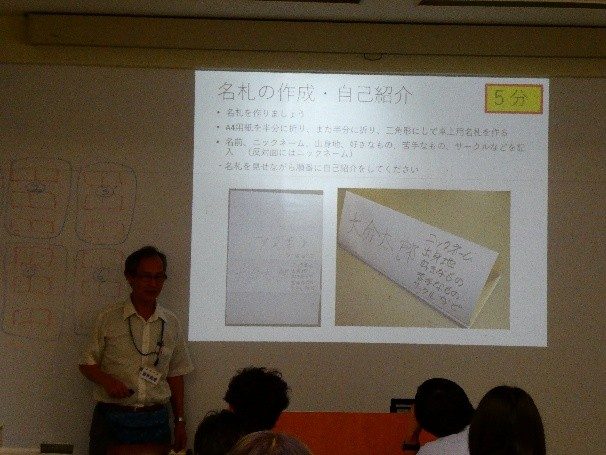 名札の作成・自己紹介
5分
• 名札を作りましょう
• A4用紙を半分に折り、また半分に折り、三角形にして卓上円名札を作る
• 名前、ニックネーム、出身地、好きなもの、苦手なもの、サークルなどを記
入 （反対面にはニックネーム）
・名札を見せながら順番に自己紹介をしてください
ニックネーム
出身地
好きなもの
苦手なもの